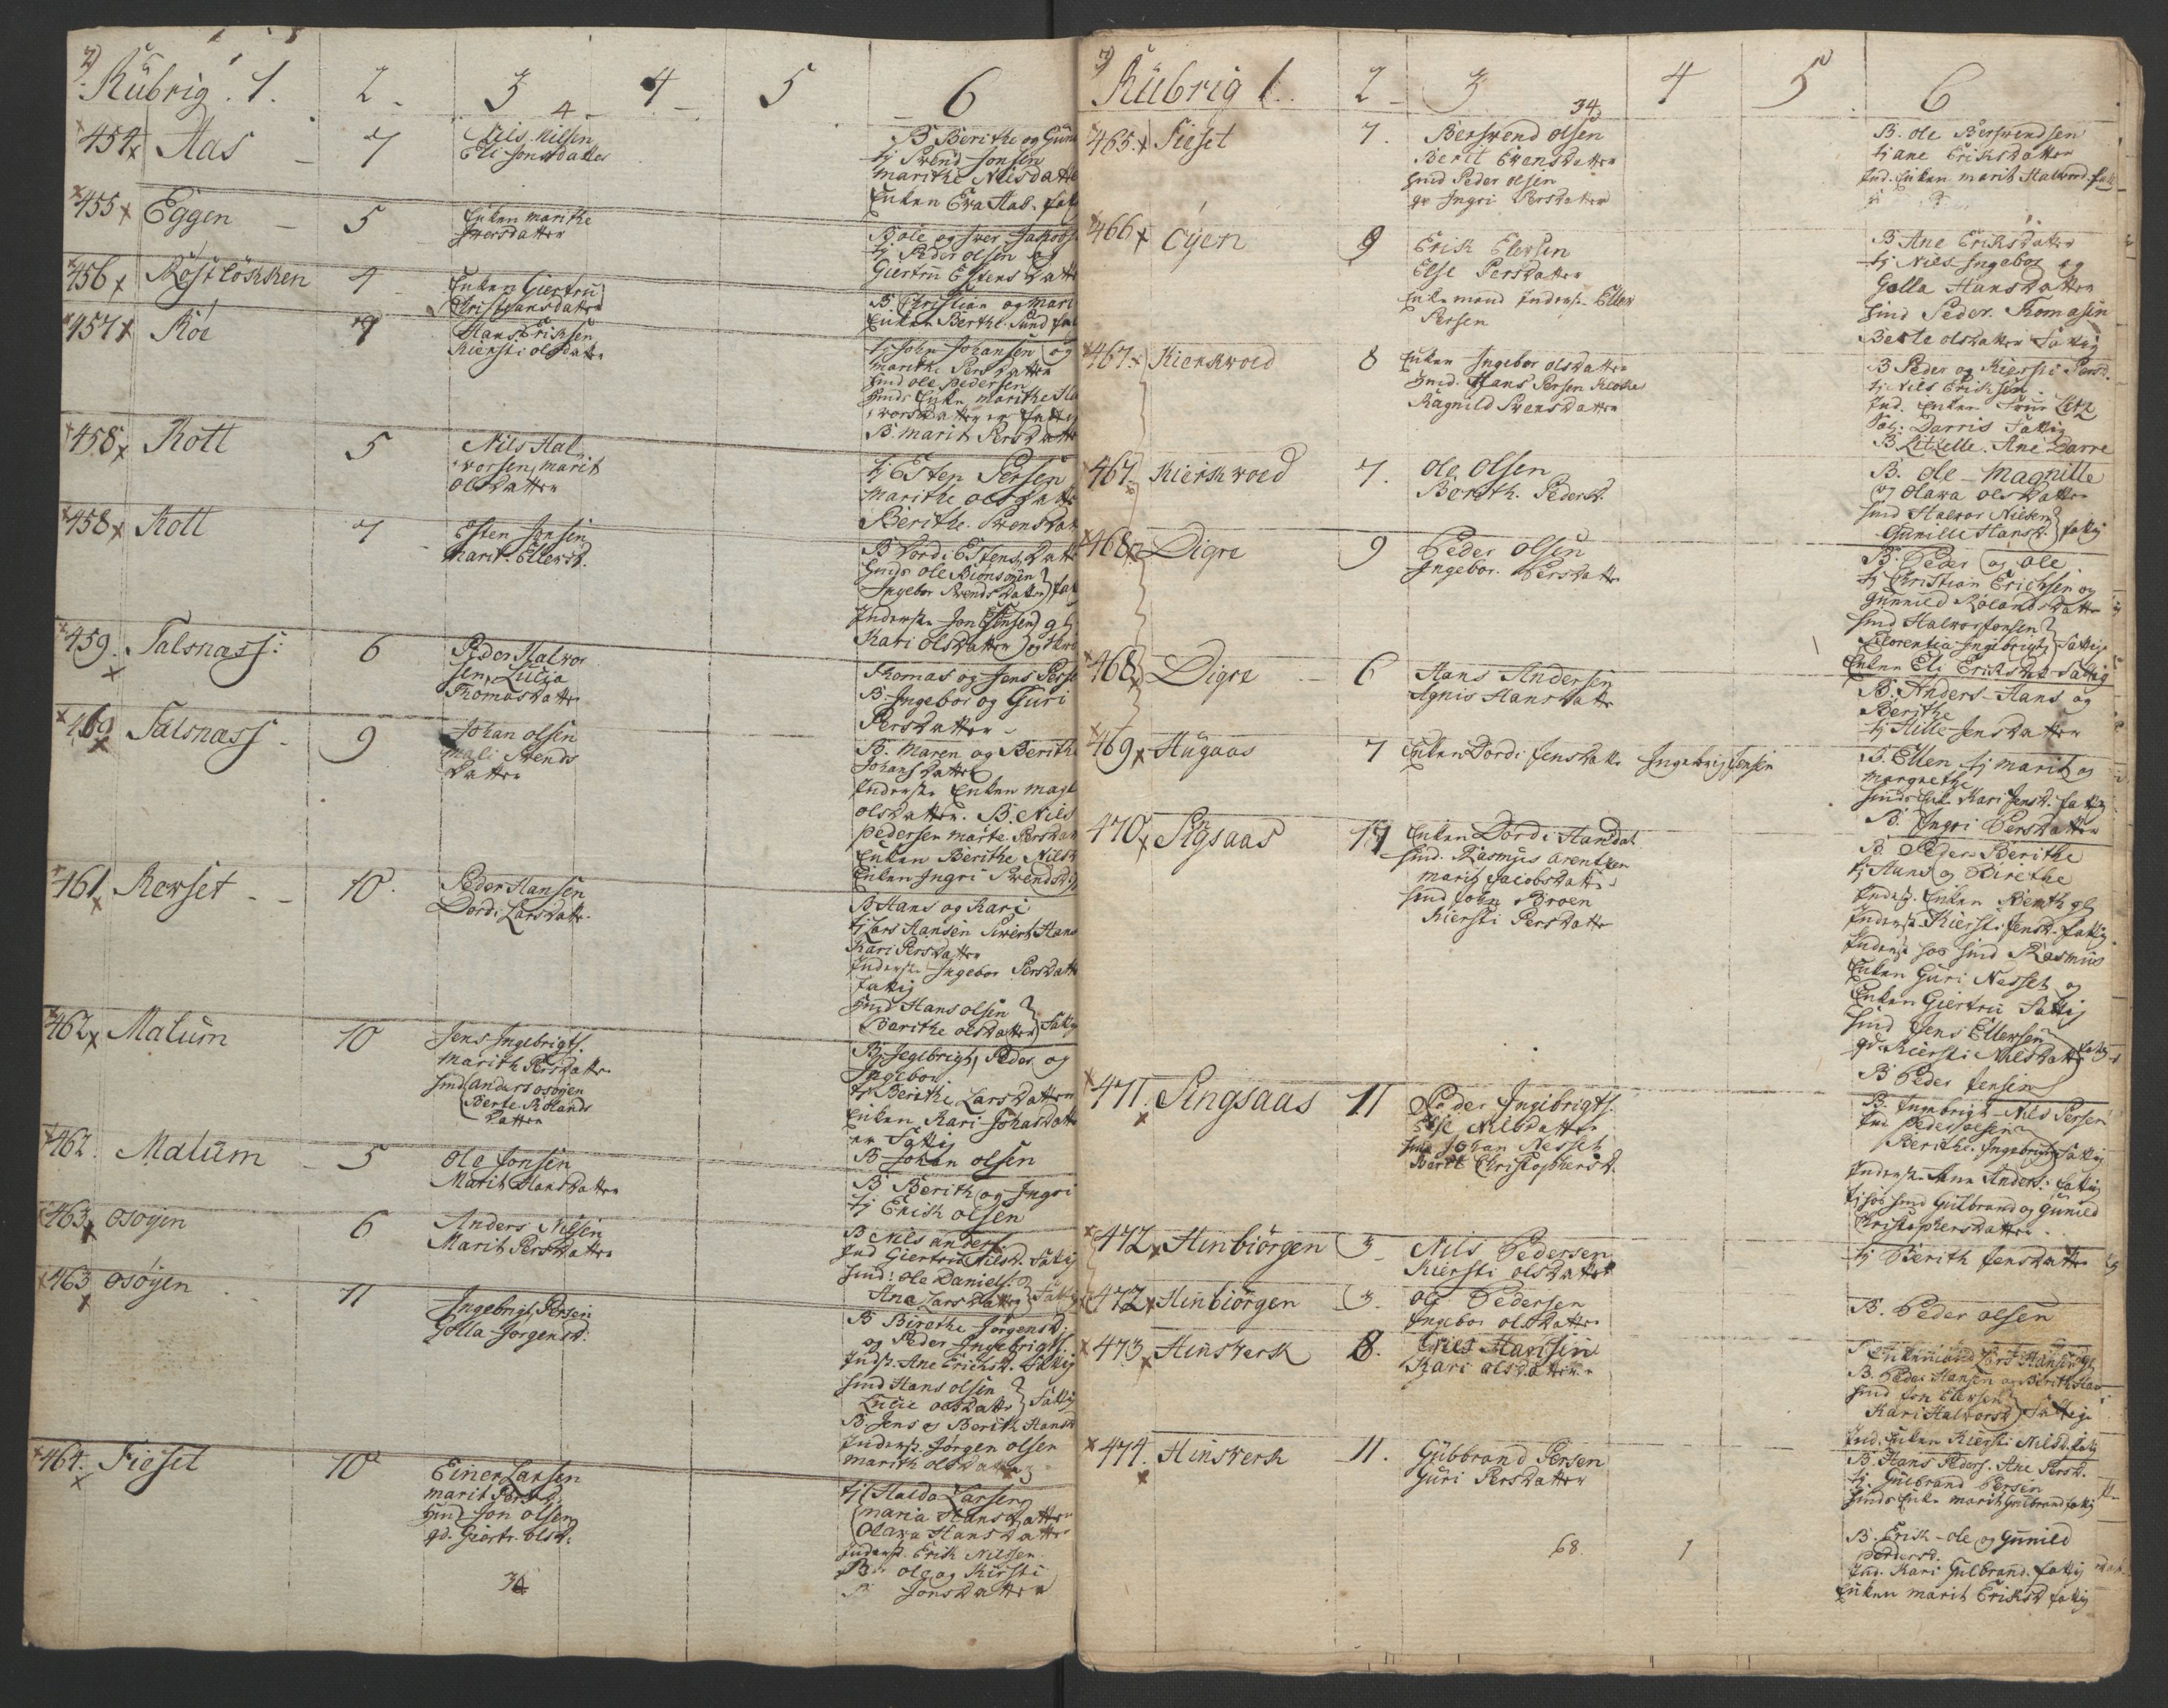 2)
Rübrig . 1. 2 - 3 4 - 5 6
4
454 Aas - 7 Nils Nilsen
Eli Jonsdatter
B Berithe og Gün
tj Svend Jonsen
marithe Nilsdatte
Enken Eva Aas.
455 Eggen - 5 Enken marithe
Iversdatter
B ole og Iver Jakobs
tj Peder olsen og
Giertru Estens Datt
456 Röstlökken 4 Enken Giertru
Christiansdatter
B Christian og mari
Enken Berthe Sund
457 Roe 9 Hans Eriksen
Kiersti olsdatter
tj John Johansen og
marithe Persdatter
hmd ole Pedersen
hmds Enke marithe
458 Kott 5 Nils Hal
vorsen, marit
olsdatter
B. marit Persdatte
tj Esten Persen
Marithe olsdatt
Berithe. Svensdat
458 Kott 7 Esten Jonsen
Marit Ellevsd.
B Dordi Estensdatt
hmds ole Biönsöyen
Ingebor Svendsdatter
Inderste Jon Ellinsen
Kari olsdatter
459. Talsnass: 6 Peder Halvor
sen, Lucia
Thomasdatter
Thomas og Jens Perse
B Ingebor og Guri
Persdatter
469 Talsnass - 9 Johan olsen
mali Svends
datter
B. Maren og Berith
Johansdatter
Inderste Enken magl
olsdatter. B. Nils
pedersen marte Persdat
Enken Berithe Nilsd
Enken Ingri Svendsd
461 Rovset - - 10. Peder Hansen
Dordi Larsdatter
B Hans og Kari
tj Lars Hansen Sivert Hans
Kari Persdatter
Inderste Ingebor Persdatt
fattig
hmd Hans olsen
Barithe olsdatter fattig
462 Malum 10 Jens Ingebrigts.
marith Persdatter
hmd anders osöyen
Berte Rolands
Datter
B Ingebrigt, Peder og
Ingebor
tj Berithe Larsdatter
Enken Kari Johasdatt
er Fattig
B Johan olsen
462. Malüm - 5 Ole Jonsen
Marit Hansdatter
B Berith og Ingri
tj Erick olsen
463 osöyen 6 Anders Nilsen
Marit Persdatter
B Nils anders
Ind Giertru Nilsd. Fattig
hmd: ole Daniels.
Ane Larsdatter
463 osöyen 11 Ingebrigt Persen
Golla Jorgensd:
B Birethe Jörgensd:
og Peder Ingebrigts.
Indst. Ane Erichsd. Fattig
hmd Hans olsen
Lucie olsdatter Fattig
B. Jens og Berith Hansd
Inderst. Jörgen olsen
marith olsdatter
464. Fieset 10 Einer Larsen
marit Persd:
hmd Jon olsen
qd. Giertr. olsd:
tj Halda Larsen
maria Hansdatter
Olava Hansdatter
Inderst. Erik Nilssen
B: ole og Kirsti
B Jonsdatter
34
3)
Rübrig 1. 2 - 3 4 5 6
34
465. Fieset 7. Bersvend olsen
Berit Evensdatter
hmd Peder olsen
qv Ingri Persdatter
B. ole Bersvendsen
tj ane Eriksdatter
Ind. Enken marit Halvord.
466 Öyen 9 Erik Elevsen
Else Persdatter
Enkemand Inderste Ellev
Persen
B Ane Eriksdatter
tj Niels Ingebor og
Golla Hansdatter
hmd Peder Thomasen
Berte olsdatter Fattig
467. Kierkvold 8 Enken Ingebor olsdatter
hmd. Hans Persen Klokke
Ragnild Svensdatter
B Peder og Kiersti Persd.
tj Nils Eriksen
Ind. Enken
Darris Fattig
B Litzelle. Ane Darre
467. Kierkvold 7. ole olsen
Berith. Pedersd.
B. ole - Magnille
og Olava olsdatter
hmd Halvor Nilsen
Gunille Hansd. fattig
468 Digre 9 Peder olsen
Ingebor. Persdatter
B. Peder og ole
tj Christian Erichsen og
Gunnild Rolandsdatter
hmd Halvor Jonsen
Florentia Ingebrigts Fattig
Enken Eli Eriksdt Fattig
468 Digre 6 Hans Andersen
Agnis Hansdatter
B. Anders - Hans og
Berithe
tj Hille Jensdatter
469 Haugaas 7 Enken Dordi Jensdatter Ingebrigt Jensen
B. Ellen tj marit og
margrethe
hmds Enke Kari Jensd. fattig
B. Ingri Persdatter
470 Singsaas 19 Enken Dordi Hansdat
hmd. Rasmus arentsen
marit Jacobsdatter
hmd John Broen
Kiersti Persdatter
B Peder Berithe
tj Hans og Direthe
Inderst. Enken Bereth
Inderste Kiersti Jensd. fattig
Inderst hos hmd Rasmus
Enken Guri Nesset og
Enken Giertru Fattig
hmd Jens Ellevsen
qd. Kiersti Nilsdatter fattig
B Peder Jensen
471. Singsaas 11 Peder Ingebrigts.
Nilsdatter
hmd Johan Nesset
Berit Christophersd.
B. Ingebrigt - Nils Persen
Ind Peder olsen
Berithe. Ingebrigts Fattig
Inderste Ane Anders: fattig
tj hos hmd Gulbrand og Gunild
Christophersdatter
472 Hinbiörgen 3 Nils Pedersen
Kiersti olsdatter
tj Berith Jensdatter
472 Hinbiörgen 3. ole Pedersen
Ingebor olsdatter
B. Peder olsen
473 Hinsverk 8. Hansen
Kari olsdatter
Enkemand Lars Hansen
B. Peder Hansen og Berith
hmd Jon Elevsen
Kari Halvorsd Fattig
Ind. Enken Kiersti Nilsd. fattig
474. Hinsverk 11. Gubbrand Persen
Guri Persdatter
B. Hans Peders. Ane Persd.
tj. Gulbrand Persen
hmds Enke marit Gulbrand fattig
B. Erik - ole og Gunild
pedersd.
Ind. Kari Gulbrand. fattig
Enken marit Eriksd fattig
68. 1